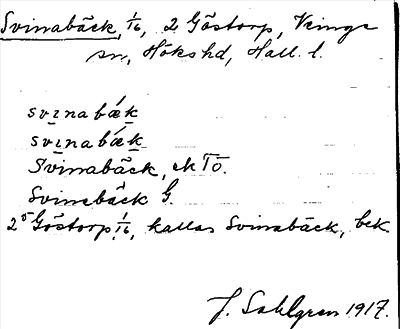 Svinabäck, 1/16, 2 Göstorp, Veinge
sn, Hökshd, Hall. l.
svinabǽk
svinabǽk
Svinabäck, ek To.
Svinebäck G.
2 Göstorp, 1/16, kallas Svinabäck, bek
J. Sahlgren 1917.